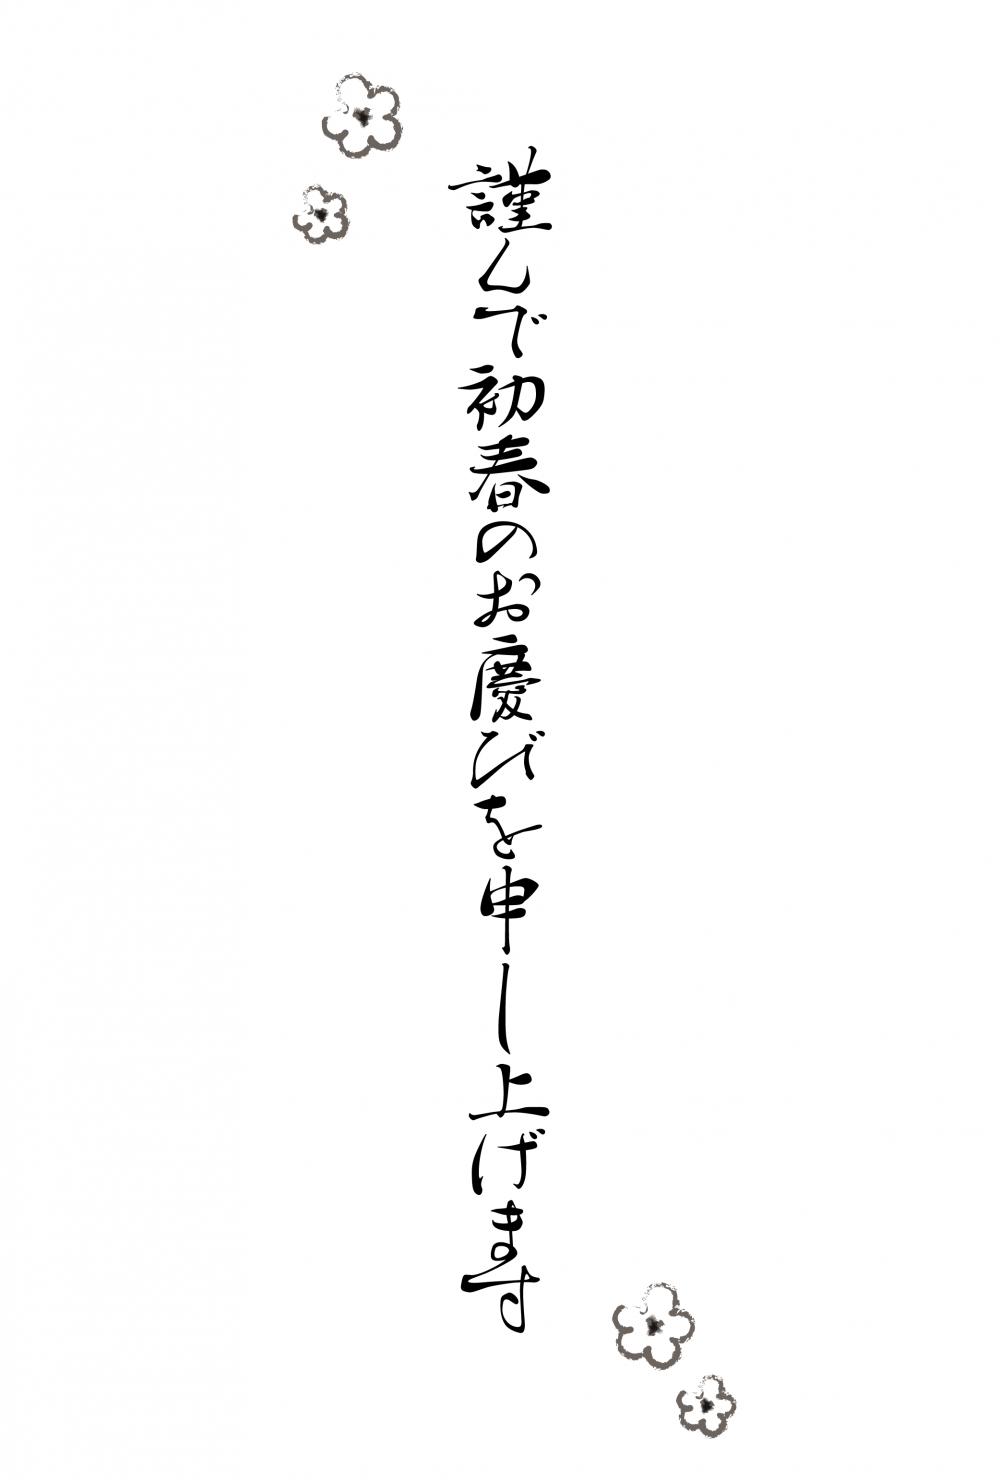 謹んで初春のお慶びを申し上げます